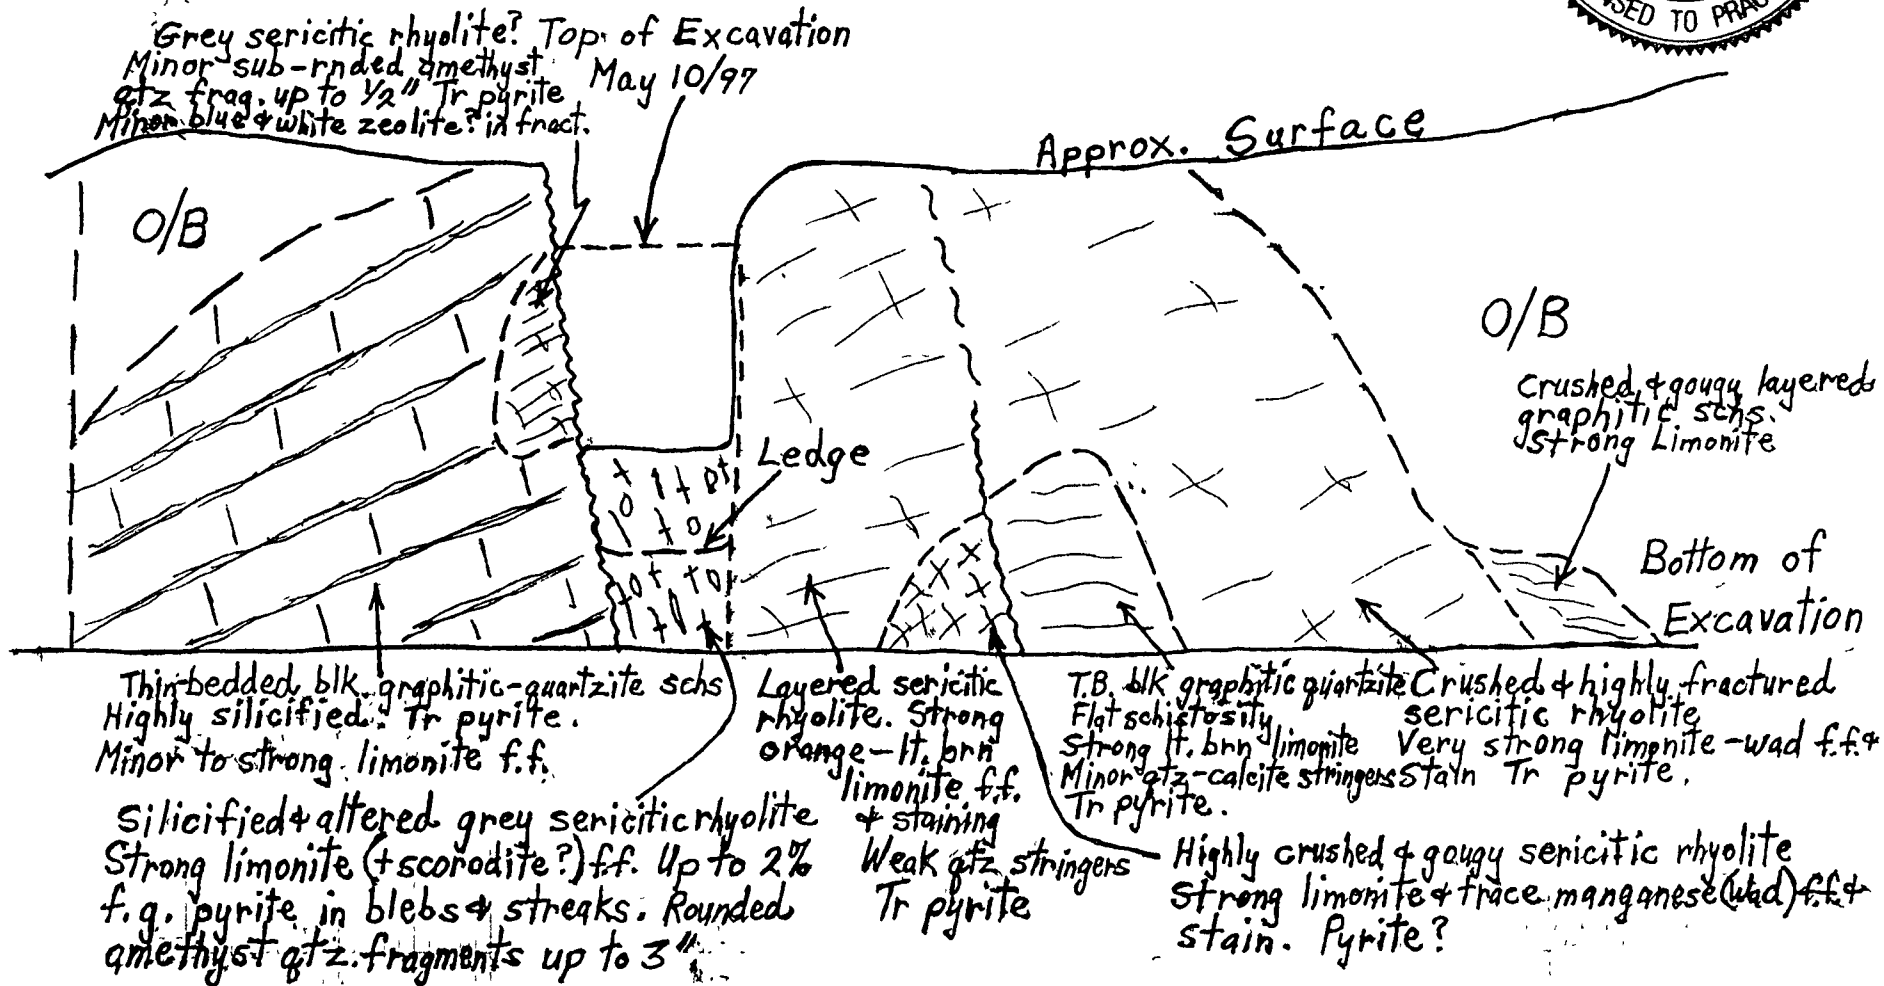 Grey sericitic rhyolite?
Minor sub-rnded amethyst
qtz frag. up to 1/2" Tr pyrite
Minor blue & white zeolite? in fract.
Top of Excavation
May 10/97
TO
Approx. Surface
O/B
O/B
Crushed & gougy layered
graphitic schs.
Strong Limonite
Ledge
Bottom of
Excavation
Thin-bedded blk. graphitic-quartzite schs
Highly silicified. Tr pyrite.
Minor to strong limonite f.f.
Silicified & altered grey sericitic rhyolite
Strong limonite (+scorodite?) f.f. Up to 2%
f.g. pyrite in blebs & streaks. Rounded
amethyst qtz. fragments up to 3"
Layered sericitic
rhyolite. Strong
orange-lt. brn
limonite f.f.
& staining
Weak qtz stringers
Tr pyrite
T.B. blk graphitic quartzite
Flat schistosity
Strong lt. brn limonite
Minor qtz-calcite stringers
Tr pyrite.
Crushed & highly fractured
sericitic rhyolite
Very strong limonite-wad f.f. &
Stain Tr pyrite.
Highly crushed & gougy sericitic rhyolite
Strong limonite & trace manganese (wad) f.f. &
stain. Pyrite?